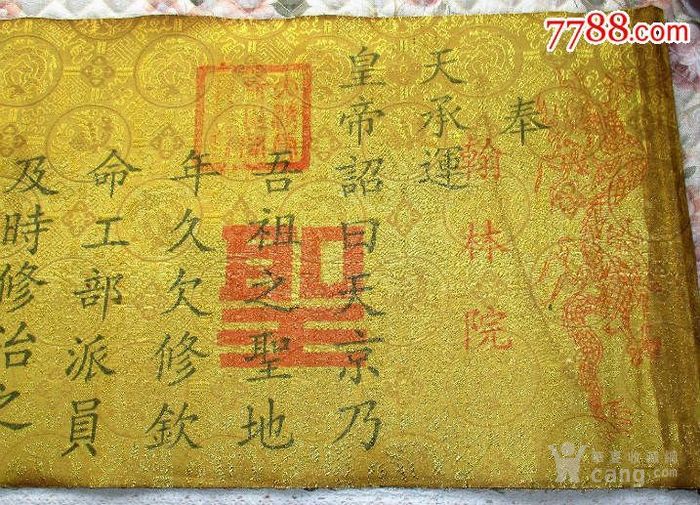 奉
天承運
皇帝詔曰天京乃
吾祖之聖地
年久欠修欽
命工部派員
及時修治之
翰林院
聖
7788.com
華夏收藏網
cang.com